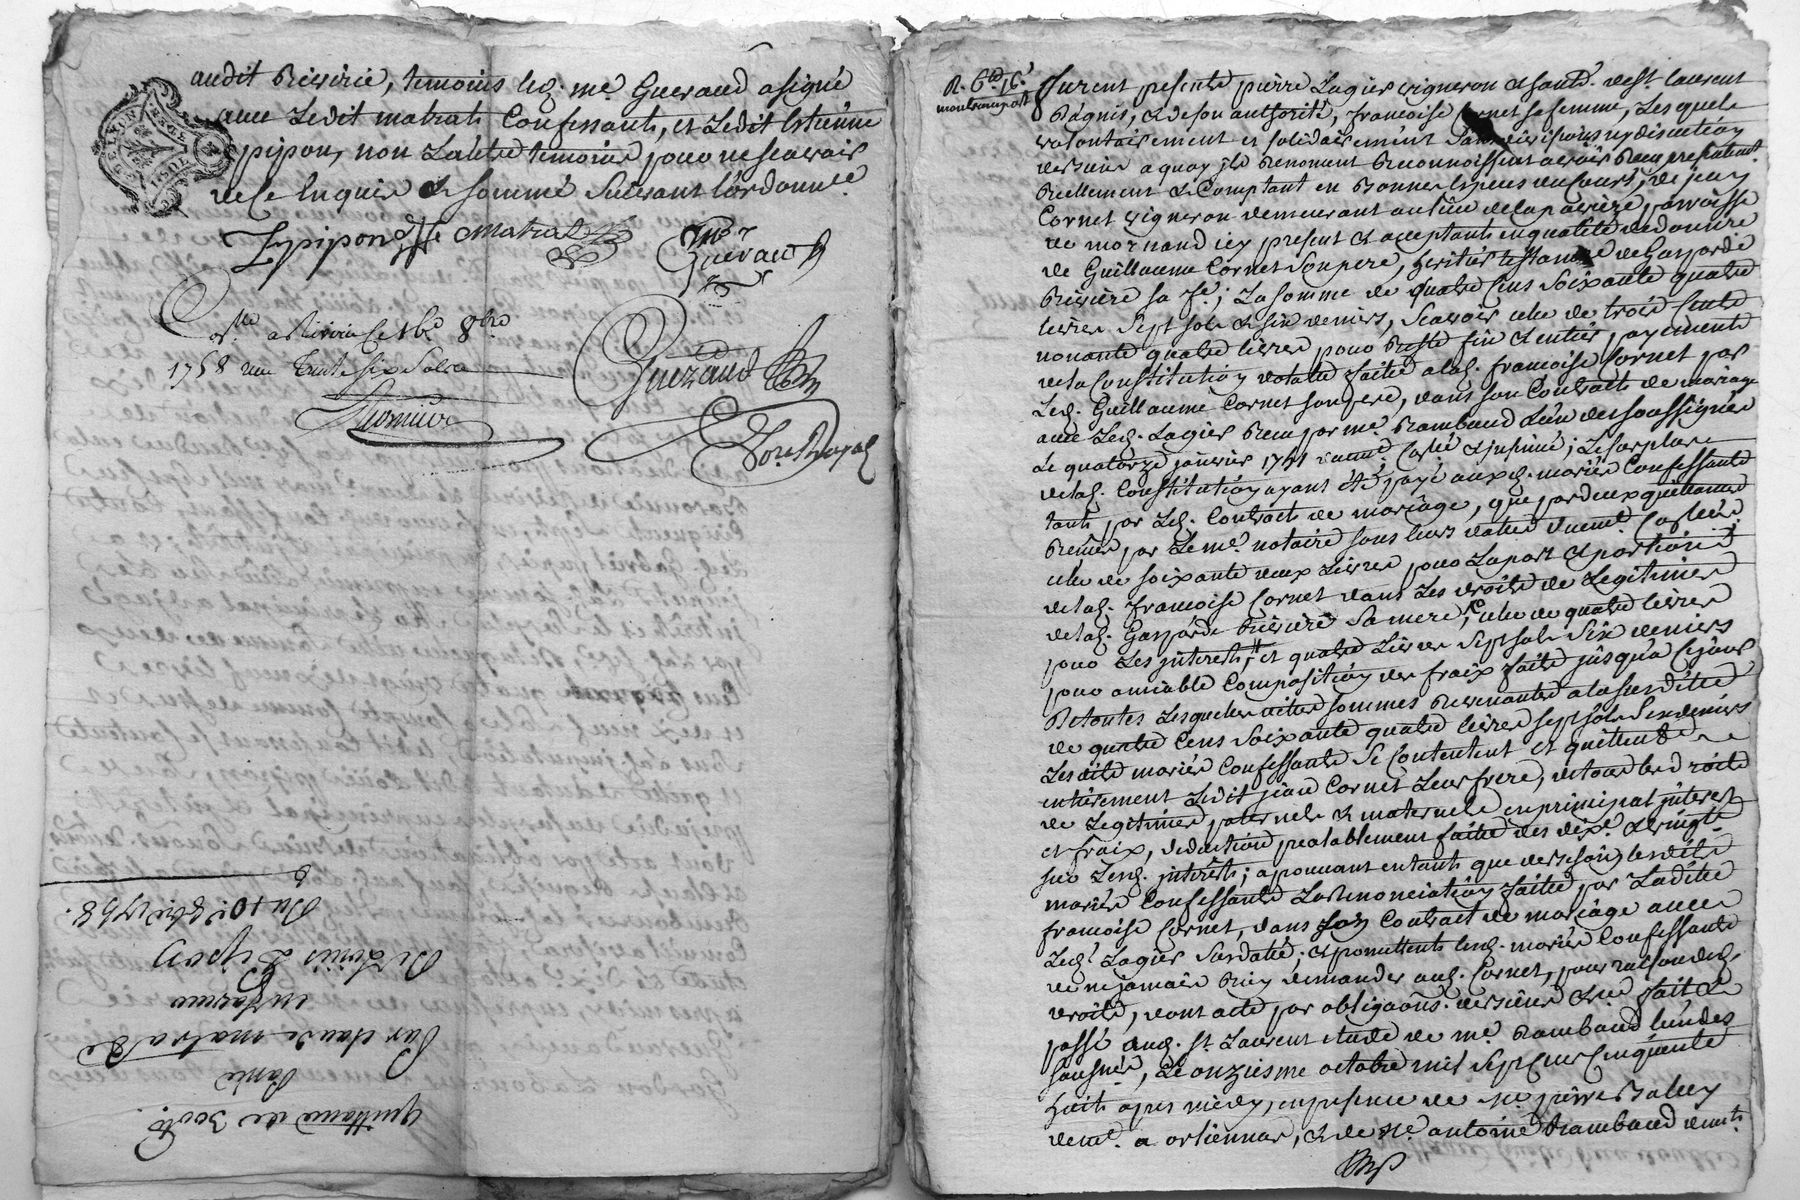 audit Riverie, temoins led. me. Gueraud a signé
avec Ledit matrat Confessant, et Ledit Estienne
pipon, non L'autre temoin pour ne scavoir
de ce Enquis & sommé Suivant L'ordonnce.
E pipon matrat
Gueraud
Clle. a Riverie Ce 16e 8bre
1758 reçu trente six Sols
Gueraud
Du 10e 8bre 1758.
De Louis Pipon
en faveur
Par Claude matrat de
Quittance de 300lt
R. 6e 16e
montrempot
Furent presents pierre Lagier vigneron & santé. de St. Laurent
Dagnis, & de son authorité, francoise Cornet sa femme, Lesquels
volontairement et solidairement sans division ny discution
de biens a quoy ils Renoncent Reconnoissent avoir Recu presentemt.
Reellement & Comptant en Bonnes Especes au Cours, de jean
Cornet vigneron demeurant au lieu de la paroisse
de mornand icy present & acceptant en qualité de donataire
de Guillaume Cornet Son pere, heritier testamre. de Gasparde
Riviere sa fe.; La somme de quatre Cens Soixante quatre
livres Sept sols & six deniers, Scavoir celle de trois Cents
nonante quatre livres pour Reste fin & entier payement
de la Constitution dotale faite a lad. francoise Cornet par
Led. Guillaume Cornet son pere, dans son Contract de mariage
avec Led. Lagier Recu par me. Rambaud L'un des soussignés
Le quatorze janvier 1751 duemt. Collé & insinué; Le surplus
de lad. Constitution ayant été payé auxd. mariés Confessants
tant par Led. Contract de mariage, que par deux quittances
Recües par Led. me. notaire sous leurs dates duemt. Collées.
celle de soixante deux Livres pour La part & portion
de lad. francoise Cornet dans Les droits de Legitimes
de lad. Gasparde Riviere sa mere, celle de quatre livres
pour Les interests, et quatre Livres Sept sols Six deniers
pour amiable Composition des fraix faits jusqu'a Ce jour
De toutes Lesquelles dites sommes Revenantes a la susdite
de quatre Cens Soixante quatre livres sept sols Six deniers
Lesdits mariés Confessants Se Contentent et quittent
entierement Ledit jean Cornet Leur frere, de tous les droits
de Legitimes paternels & maternels en principal interest
et fraix, deduction prealablement faite des dixe. & vingte.
sur Lesd. interests; aprouvant en tant que de besoin lesdits
mariés Confessants La Renonciation faite par Ladite
francoise Cornet, dans son Contract de mariage avec
Led. Lagier Susdaté; & promettent lesd. mariés Confessants
de ne jamais Rien demander aud. Cornet, pour raison desd.
droits, dont acte par obligaons. de biens &ce fait &
passé aud. St. Laurent etude de me. Rambaud l'un des
sousnés, Le onziesme octobre mil sept Cens Cinquante
huit apres midy, en presence de sr. pierre Balley
demt. a orlienas, & de sr. antoine Rambaud demt.